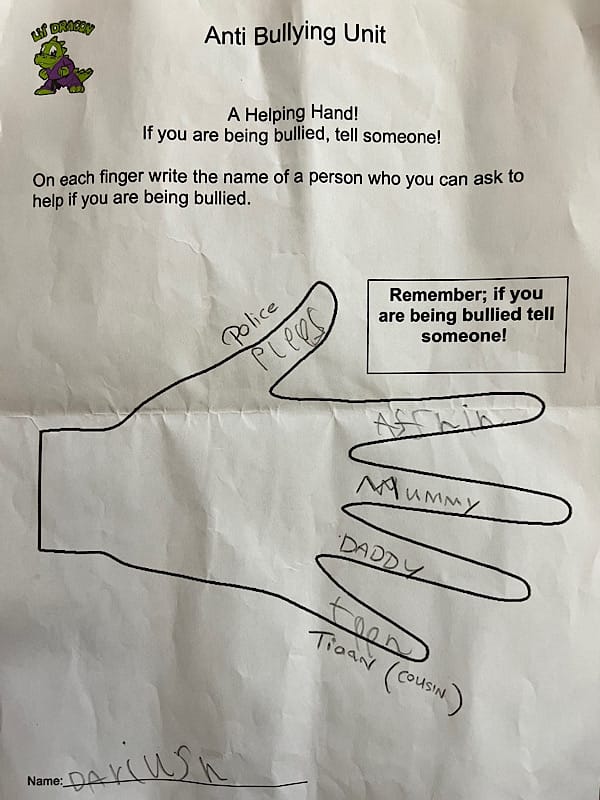 LIL' DRAGON
Anti Bullying Unit
A Helping Hand!
If you are being bullied, tell someone!
On each finger write the name of a person who you can ask to
help if you are being bullied.
Remember; if you
are being bullied tell
someone!
Police
PLees
Affhin
Mummy
DADDY
teen
Tiaan (COUSIN)
Name: DAriUSh